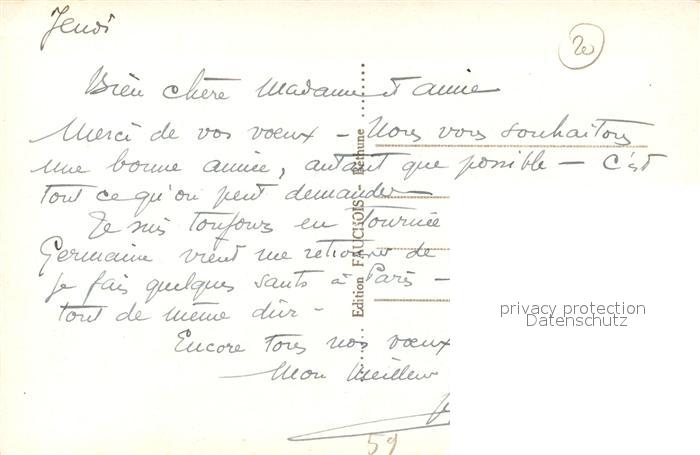 Jeudi
20
Bien chère Madame et amie
Merci de vos vœux — Nous vous souhaitons
une bonne année, autant que possible — C'est
tout ce qu'on peut demander —
Je suis toujours en tournée
Germaine vient me retrouver de
je fais quelques sauts à Paris —
tout de même dur -
Encore tous nos vœux
Mon meilleur
Edition FAUCHOIS - Béthune
privacy protection
Datenschutz
59